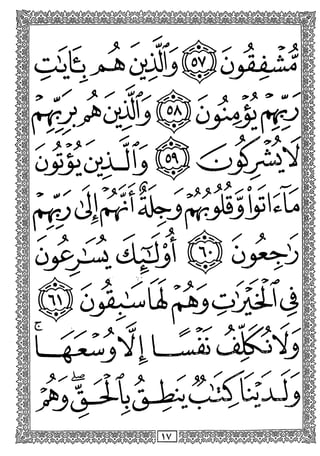 مُّشۡفِقُونَ ٥٧ وَٱلَّذِينَ هُم بِـَٔايَٰتِ
رَبِّهِمۡ يُؤۡمِنُونَ ٥٨ وَٱلَّذِينَ هُم بِرَبِّهِمۡ
لَا يُشۡرِكُونَ ٥٩ وَٱلَّذِينَ يُؤۡتُونَ
مَآ ءَاتَواْ وَّقُلُوبُهُمۡ وَجِلَةٌ أَنَّهُمۡ إِلَىٰ رَبِّهِمۡ
رَٰجِعُونَ ٦٠ أُوْلَٰٓئِكَ يُسَٰرِعُونَ
فِي ٱلۡخَيۡرَٰتِ وَهُمۡ لَهَا سَٰبِقُونَ ٦١
وَلَا نُكَلِّفُ نَفۡسًا إِلَّا وُسۡعَهَاۚ
وَلَدَيۡنَا كِتَٰبٞ يَنطِقُ بِٱلۡحَقِّ وَهُمۡ
١٧